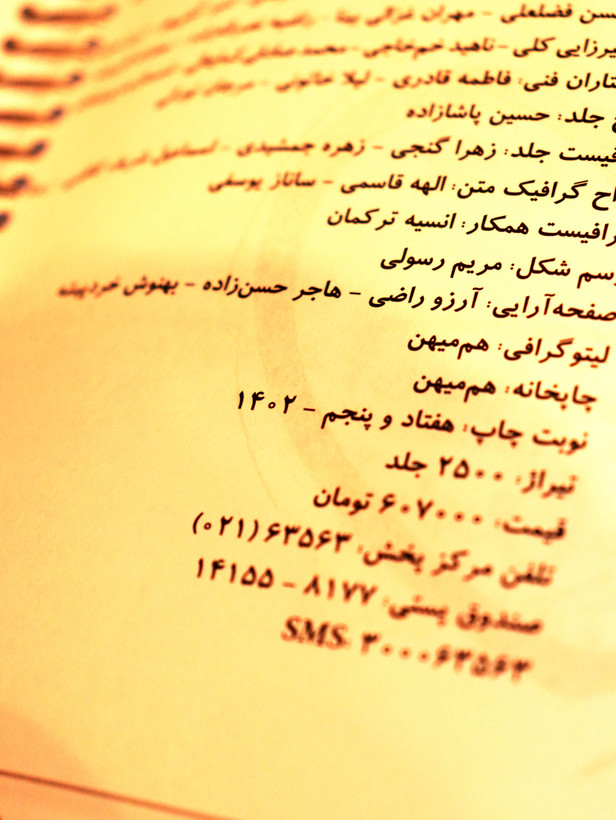 حسن فضلعلی - مهران
میرزایی کلی - ناهید حم‌حاجی - محمد
فنی: فاطمه قادری - لیلا خاتونی
جلد: حسین پاشازاده
جلد: زهرا گنجی - زهره جمشیدی
گرافیک متن: الهه قاسمی - ساناز یوسفی
همکار: انسیه ترکمان
رسم شکل: مریم رسولی
صفحه‌آرایی: آرزو راضی - هاجر حسن‌زاده - بهنوش خردپیشه
لیتوگرافی: هم‌میهن
چاپخانه: هم‌میهن
نوبت چاپ: هفتاد و پنجم - ۱۴۰۲
تیراژ: ۲۵۰۰ جلد
قیمت: ۶۰۷۰۰۰ تومان
تلفن مرکز پخش: ۶۳۵۶۳ (۰۲۱)
صندوق پستی: ۸۱۷۷ - ۱۴۱۵۵
SMS: ۳۰۰۰۶۳۵۶۳